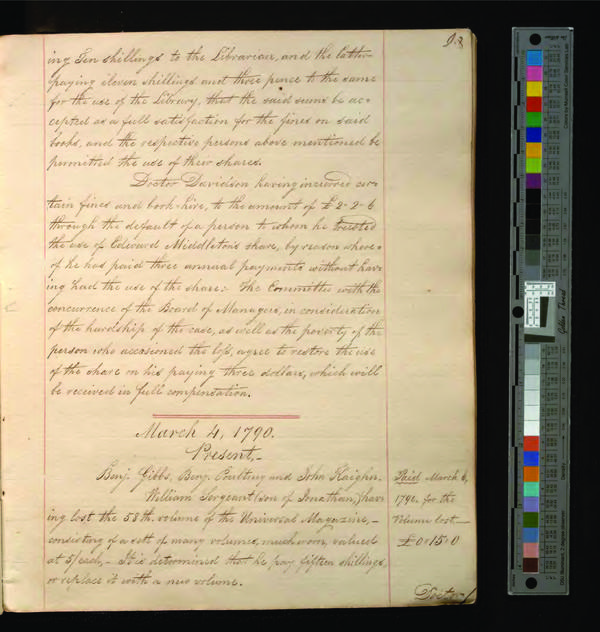 98
ing Ten shillings to the Librarian, and the latter
paying eleven shillings and three pence to the same
for the use of the Library, that the said sums be ac-
cepted as a full satisfaction for the fines on said
books, and the respective persons above mentioned be
permitted the use of their shares.
Doctor Davidson having incurred cer-
tain fines and book-hire, to the amount of £2-2-6
through the default of a person to whom he trusted
the use of Edward Middleton's share, by reason where-
of he has paid three annual payments without hav-
ing had the use of the share:- The Committee with the
concurrence of the Board of Managers, in consideration
of the hardship of the case, as well as the poverty of the
person who occasioned the loss, agree to restore the use
of the share on his paying three dollars, which will
be received in full compensation.
March 4, 1790.
Present,-
Benj. Gibbs, Benj. Poultney and John Kaighn.
William Sergeant (son of Jonathan) hav-
ing lost the 58th. volume of the Universal Magazine,-
consisting of a sett of many volumes, much worn, valued
at 5/ each,- It is determined that he pay fifteen shillings,
or replace it with a new volume.
Paid March 6,
1790. for the
volume lost.-
£0-15-0
Doctor